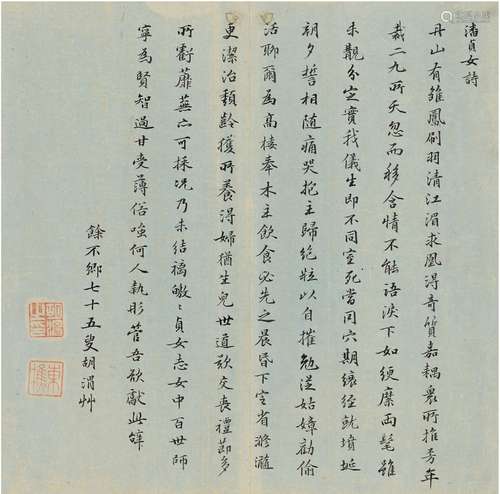 潘貞女詩
丹山有雏鳳刷羽清江湄求凰得奇質嘉耦衆所推芳年
裁二九所夭忽而移含情不能语淚下如綆縻兩髦雖
未觀分定實我儀生即不同室死當同穴期縗絰就墳埏
朝夕誓相随痛哭抱主歸絶粒以自摧勉從姑嫜勸偷
活聊爾為高樓奉木主飲食必先之晨昏下室省滫瀡
更潔治頹齡獲所養得婦猶生兒世道歎交喪禮節多
所虧蘼蕪亦可採况乃未結褵皦〻貞女志女中百世師
寧為賢智過甘受薄俗嗤何人執彤管吾欲獻此辭
餘不鄉七十五叟胡渭艸
胡渭之印
東樵